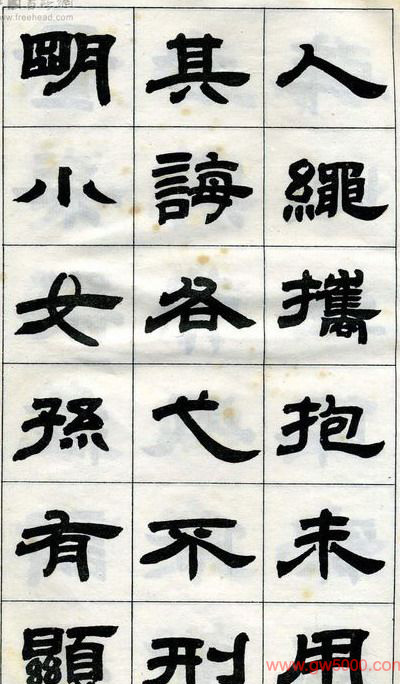 www.freehead.com
人繩攜抱未用
其誨各不刑
明小女孫有顯
www.gw5000.com